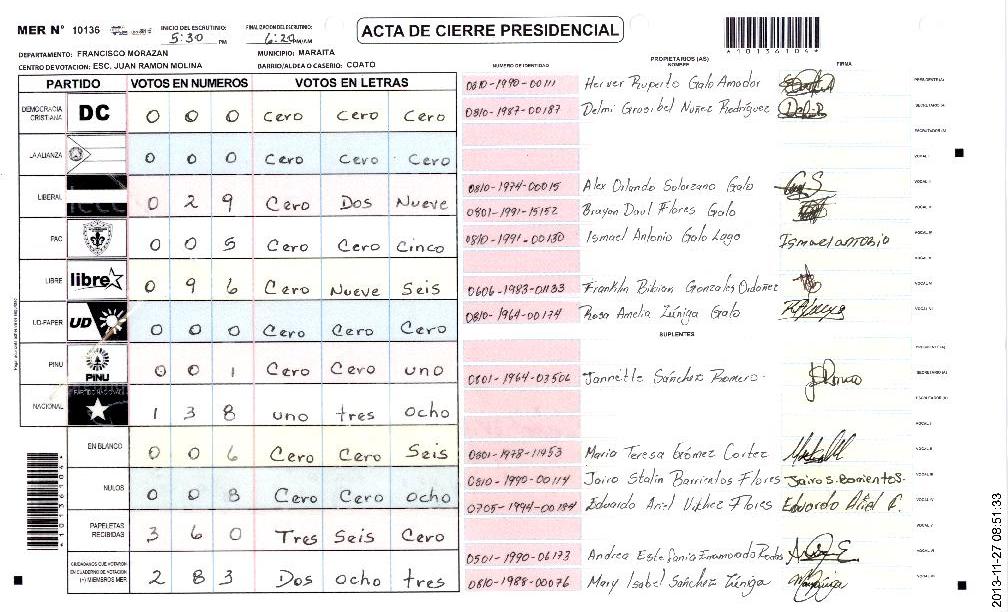 MER N° 10136
INICIO DEL ESCRUTINIO:
5:30 PM
FINALIZACION DEL ESCRUTINIO:
6:20 PM/AM
ACTA DE CIERRE PRESIDENCIAL
*10136104*
DEPARTAMENTO: FRANCISCO MORAZAN
MUNICIPIO: MARAITA
CENTRO DE VOTACION: ESC. JUAN RAMON MOLINA
BARRIO/ALDEA O CASERIO: COATO
PARTIDO VOTOS EN NUMEROS VOTOS EN LETRAS
DEMOCRACIA CRISTIANA DC 0 0 0 Cero Cero Cero
LA ALIANZA 0 0 0 Cero Cero Cero
LIBERAL 0 2 9 Cero Dos Nueve
PAC 0 0 5 Cero Cero Cinco
LIBRE libre 0 9 6 Cero Nueve Seis
UD-FAPER UD 0 0 0 Cero Cero Cero
PINU PINU 0 0 1 Cero Cero uno
NACIONAL PARTIDO NACIONAL 1 3 8 uno tres ocho
EN BLANCO 0 0 6 Cero Cero Seis
NULOS 0 0 8 Cero Cero ocho
PAPELETAS RECIBIDAS 3 6 0 Tres Seis Cero
CIUDADANOS QUE VOTARON EN CUADERNO DE VOTACION (+) MIEMBROS MER 2 8 3 Dos ocho tres
*10136104*
NUMERO DE IDENTIDAD
PROPIETARIOS (AS)
NOMBRE
FIRMA
0810-1990-00111 Herver Ruperto Galo Amador PRESIDENTE(A)
0810-1987-00187 Delmi Grosibel Nuñez Rodríguez SECRETARIO (A)
ESCRUTADOR (A)
VOCAL I
0810-1974-00015 Alex Orlando Solorzano Galo VOCAL II
0801-1991-15152 Brayan Daul Flores Galo VOCAL III
0810-1991-00130 Ismael Antonio Galo Lago Ismael antonio VOCAL IV
0606-1983-01133 Franklin Bibian Gonzales Ordoñez
0810-1964-00174 Rosa Amelia Zúniga Galo
SUPLENTES
PRESIDENTE (A)
0801-1964-03506 Jannette Sánchez Romero SECRETARIO (A)
ESCRUTADOR (A)
VOCAL I
0801-1978-11953 Maria Teresa Gómez Cortez VOCAL II
0810-1990-00114 Jairo Stalin Barrientos Flores Jairo S. Barrientos. VOCAL III
0705-1994-00184 Eduardo Ariel Vilchez Flores Eduardo Ariel VOCAL IV
VOCAL V
0501-1990-06173 Andrea Estefania Enamorado Rodas
0810-1988-00076 Mary Isabel Sánchez Zúniga
2013-11-27 08:51:33